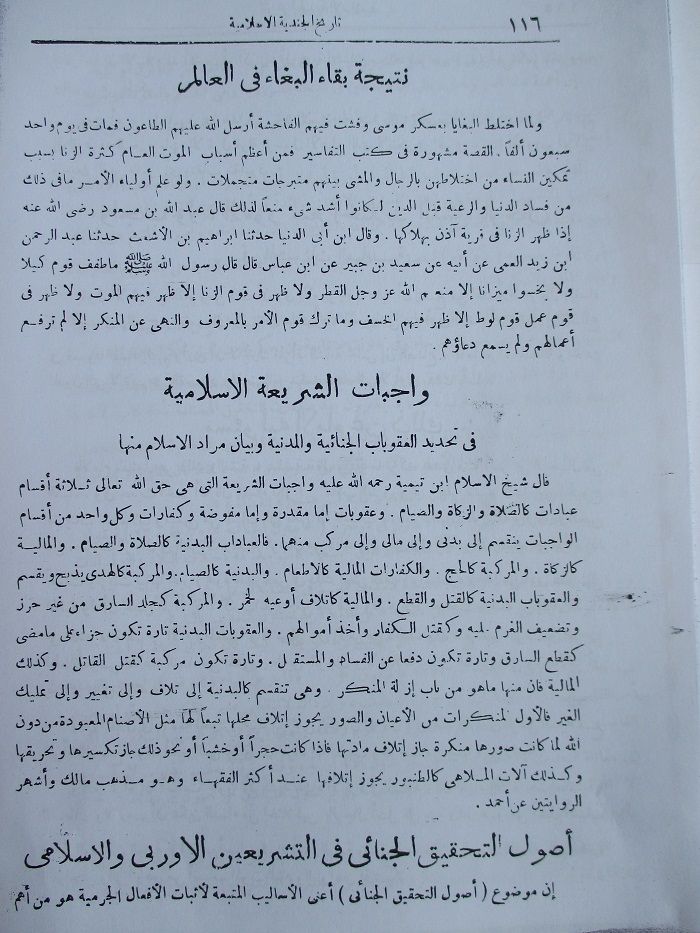 ١١٦
تاريخ الجندية الاسلامية
نتيجة بقاء البغاء فى العالم
ولما اختلط البغايا بعسكر موسى وفشت فيهم الفاحشة أرسل الله عليهم الطاعون فمات فى يوم واحد
سبعون ألفاً . القصة مشهورة فى كتب التفاسير فمن أعظم أسباب الموت العام كثرة الزنا بسبب
تمكين النساء من اختلاطهن بالرجال والمشى بينهم متبرجات متجملات . ولو علم أولياء الأمر مافى ذلك
من فساد الدنيا والرعية قبل الدين لكانوا أشد شىء منعاً لذلك قال عبد الله بن مسعود رضى الله عنه
إذا ظهر الزنا فى قرية آذن بهلاكها . وقال ابن أبى الدنيا حدثنا ابراهيم بن الأشعث حدثنا عبد الرحمن
ابن زيد العمى عن أبيه عن سعيد بن جبير عن ابن عباس قال قال رسول الله ﷺ ماطفف قوم كيلا
ولا بخسوا ميزانا إلا منعهم الله عز وجل القطر ولا ظهر فى قوم الزنا إلا ظهر فيهم الموت ولا ظهر فى
قوم عمل قوم لوط إلا ظهر فيهم الخسف وما ترك قوم الأمر بالمعروف والنهى عن المنكر إلا لم ترفع
أعمالهم ولم يسمع دعاؤهم .
واجبات الشريعة الاسلامية
فى تحديد العقوبات الجنائية والمدنية وبيان مراد الاسلام منها
قال شيخ الاسلام ابن تيمية رحمه الله عليه واجبات الشريعة التى هى حق الله تعالى ثلاثة أقسام
عبادات كالصلاة والزكاة والصيام . وعقوبات إما مقدرة وإما مفوضة وكفارات وكل واحد من أقسام
الواجبات ينقسم إلى بدنى وإلى مالى وإلى مركب منهما . فالعبادات البدنية كالصلاة والصيام . والمالية
كالزكاة . والمركبة كالحج . والكفارات المالية كالاطعام . والبدنية كالصيام.والمركبة كالهدى يذبح ويقسم
والعقوبات البدنية كالقتل والقطع . والمالية كاتلاف أوعيه الخمر . والمركبة كجلد السارق من غير حرز
وتضعيف الغرم عليه وكقتل الكفار وأخذ أموالهم . والعقوبات البدنية تارة تكون جزاء على مامضى
كقطع السارق وتارة تكون دفعا عن الفساد والمستقبل . وتارة تكون مركبة كقتل القاتل . وكذلك
المالية فان منها ماهو من باب إزالة المنكر . وهى تنقسم كالبدنية إلى تلاف وإلى تغيير وإلى تمليك
الغير فالأول المنكرات من الأعيان والصور يجوز إتلاف محلها تبعاً لها مثل الأصنام المعبودة من دون
الله لما كانت صورها منكرة جاز إتلاف مادتها فاذا كانت حجراً أو خشباً أو نحو ذلك جاز تكسيرها وتحريقها
وكذلك آلات الملاهى كالطنبور يجوز إتلافها عند أكثر الفقهاء وهو مذهب مالك وأشهر
الروايتين عن أحمد .
أصول التحقيق الجنائى فى التشريعين الاوربى والاسلامى
إن موضوع ( أصول التحقيق الجنائى ) أعنى الأساليب المتبعة لأثبات الأفعال الجرمية هو من أهم